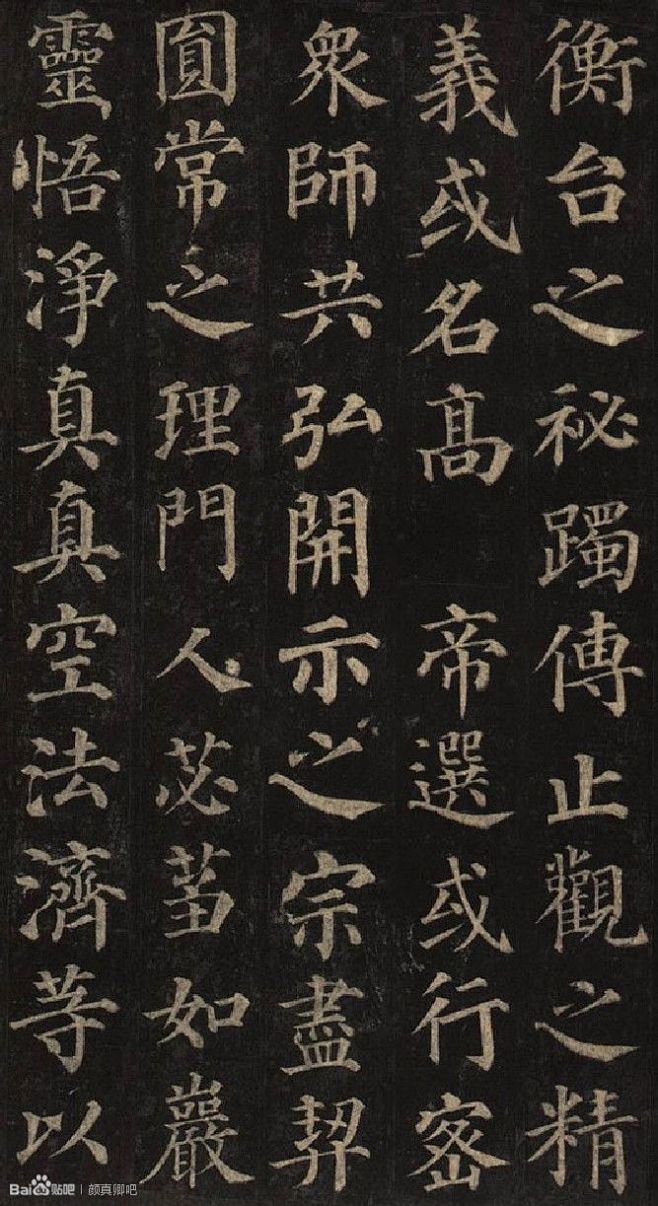 衡台之祕躅傳止觀之精
義或名髙 帝選或行宻
衆師共弘開示之宗盡契
圎常之理門人苾蒭如巖
靈悟淨真真空法濟等以
Bai貼吧 | 颜真卿吧